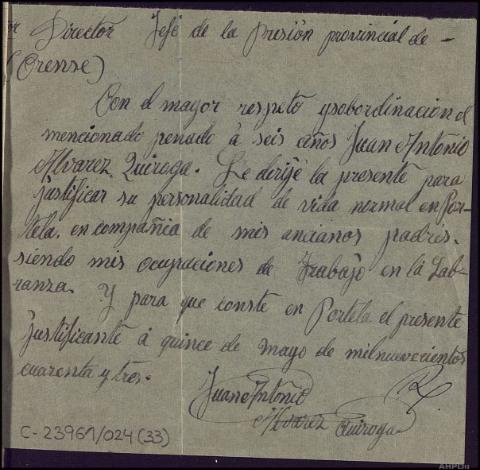 Director Jefe de la Presión provincial de -
(Orense)
Con el mayor respeto y sobordinacion el
mencionado penado á seis años Juan Antonio
Alvarez Quiroga. Le dirijé la presente para
justificar su personalidad de vida normal en Por-
tela. en compañia de mis ancianos padres.
siendo mis ocupaciones de trabajo en la Lab-
ranza. Y para que conste en Portela el presente
justificante á quince de mayo de mil nuevecientos
cuarenta y tres.
Juan Antonio
Alvarez Quiroga
C-23961/024 (33)
AHPOu